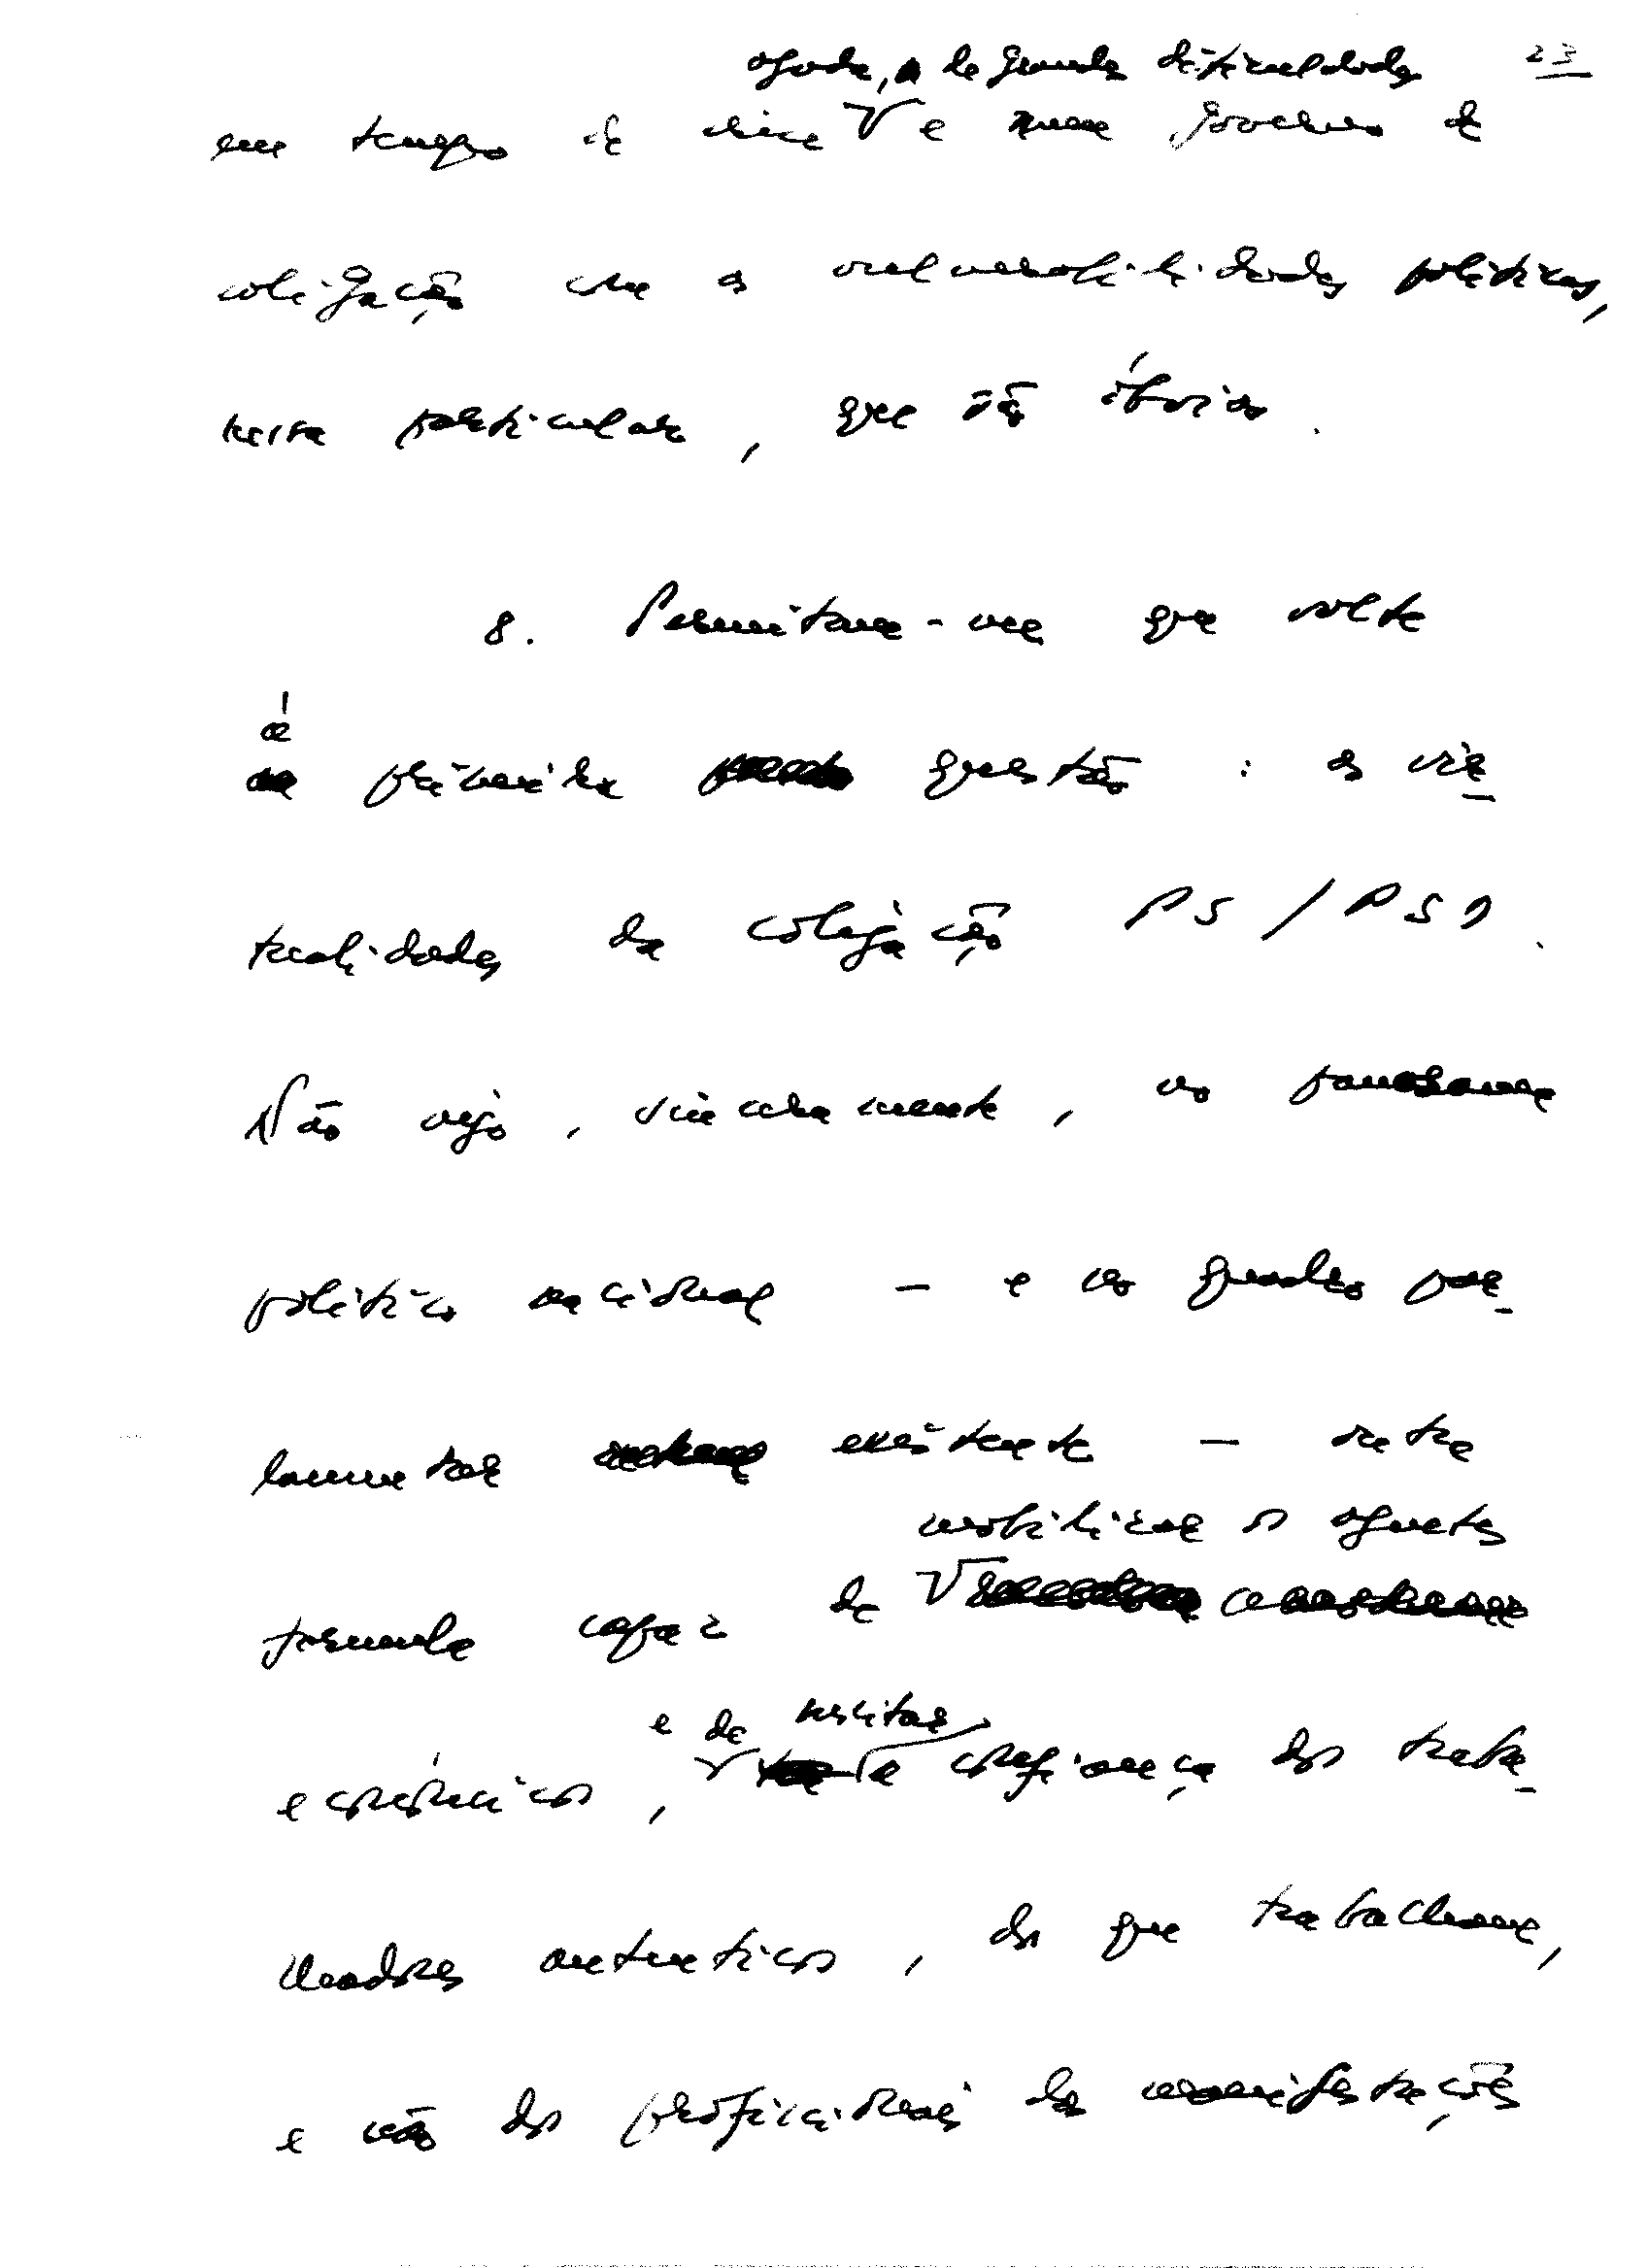 23
aguda, de grandes dificuldades
em tempo de crise e num governo de
coligação com as vulnerabilidades políticas,
nessa particular, que são óbvias.
8. Permitam-me que volte
à primeira questão: as vir-
tualidades da coligação PS/PSD.
Não vejo, sinceramente, no panorama
político nacional - e no quadro par-
lamentar existente - outra
mobilizar os agentes
fórmula capaz de
e de suscitar
económicos, a confiança dos traba-
lhadores autenticos, dos que trabalham,
e não dos profissionais das manifestações